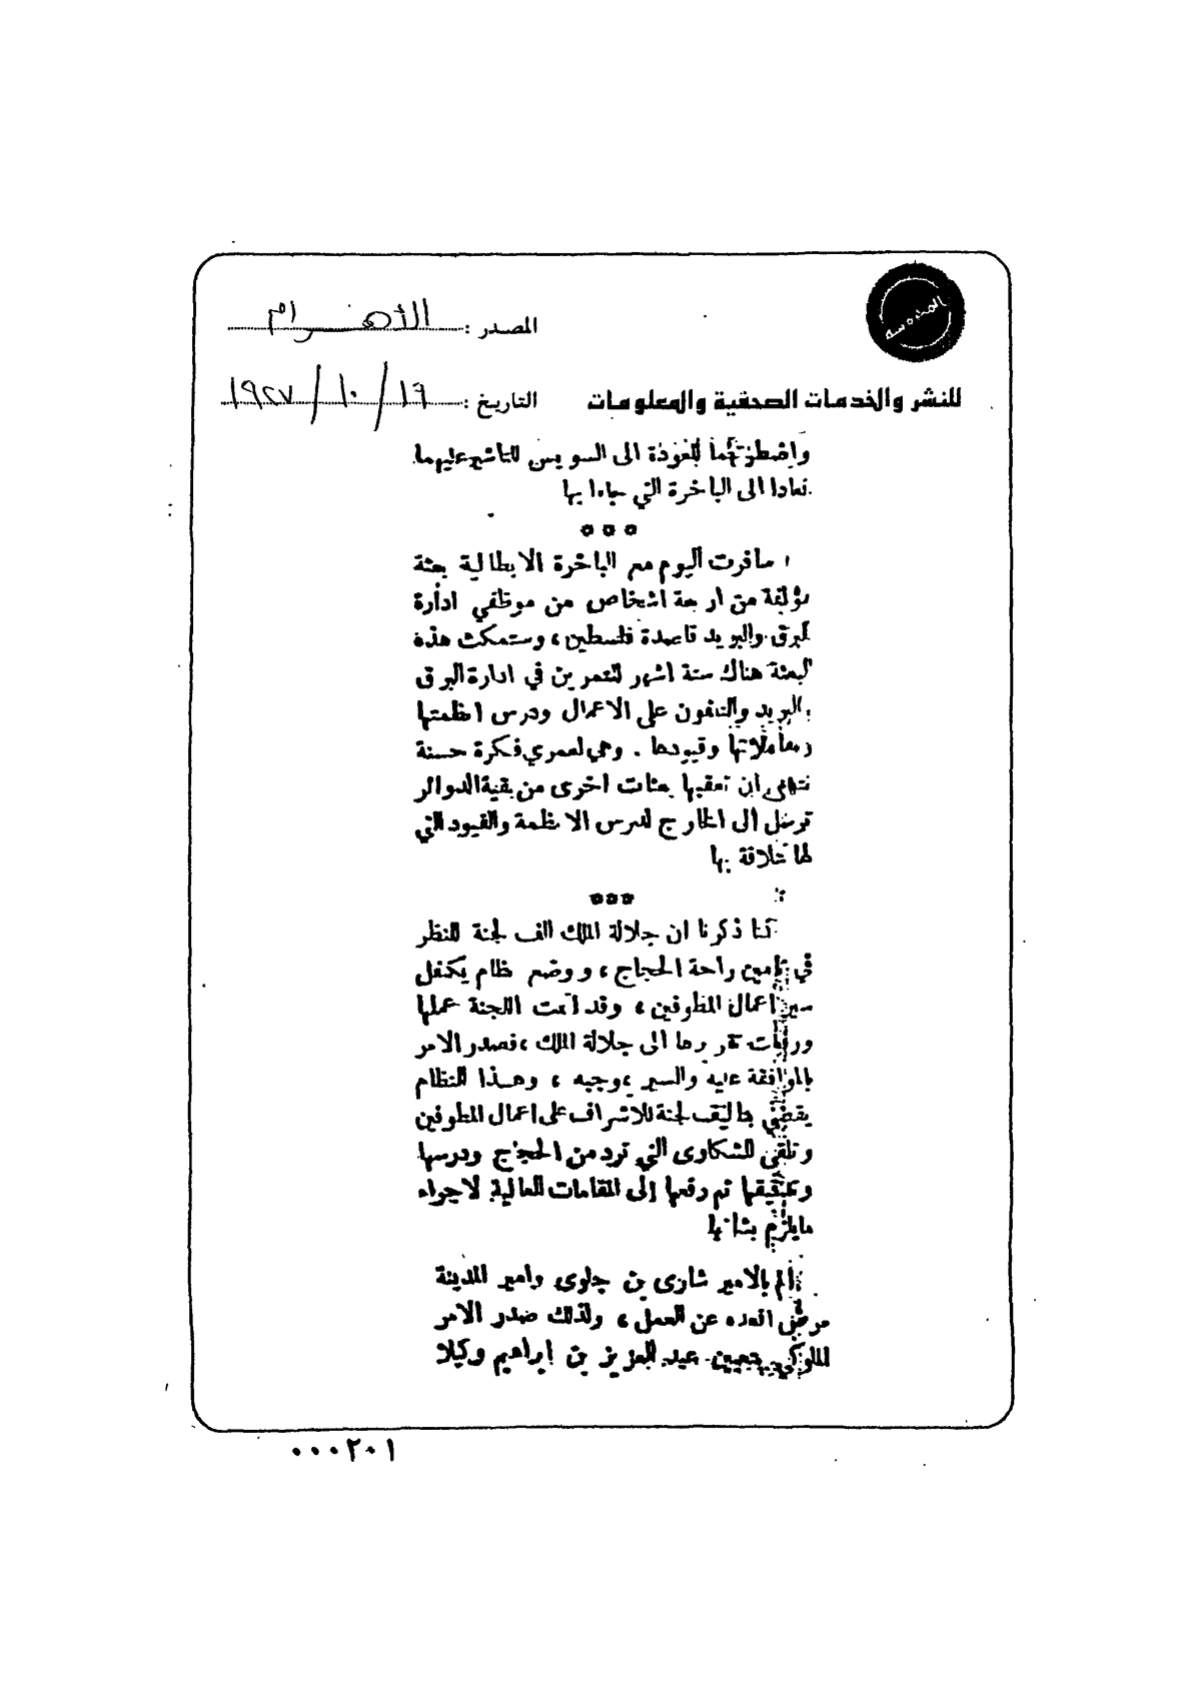 المصدر : الأهرام
للنشر والخدمات الصحفية والمعلومات
التاريخ : ١٦ / ١٠ / ١٩٢٧
للعودة الى السويس للتأشير عليهما
فعادا الى الباخرة التي جاءا بها
سافرت اليوم مع الباخرة الايطالية بعثة
مؤلفة من اربعة اشخاص من موظفي ادارة
البرق والبريد قاصدة فلسطين ، وستمكث هذه
البعثة هناك ستة اشهر للتمرين في ادارة البرق
والبريد والتلفون على الاعمال ودرس انظمتها
ومعاملاتها وقيودها . وهي لعمري فكرة حسنة
نتمنى ان تعقبها بعثات اخرى من بقية الدوائر
ترسل الى الخارج لدرس الانظمة والقيود التي
لها علاقة بها
كنا ذكرنا ان جلالة الملك الف لجنة للنظر
في تأمين راحة الحجاج ، ووضع نظام يكفل
سير اعمال المطوفين ، وقد اتمت اللجنة عملها
ورفعت تقريرها الى جلالة الملك ، فصدر الامر
بالموافقة عليه والسير بموجبه ، وهذا النظام
يقضي بتأليف لجنة للاشراف على اعمال المطوفين
وتلقي الشكاوى التي ترد من الحجاج ودرسها
وتحقيقها ثم رفعها إلى المقامات العالية لاجراء
مايلزم بشأنها
ألم بالامير شارى بن جلوى وامير المدينة
مرض اقعده عن العمل ، ولذلك صدر الامر
الملوكي بتعيين عبد العزيز بن ابراهيم وكيلا
٠٠٠٢٠١